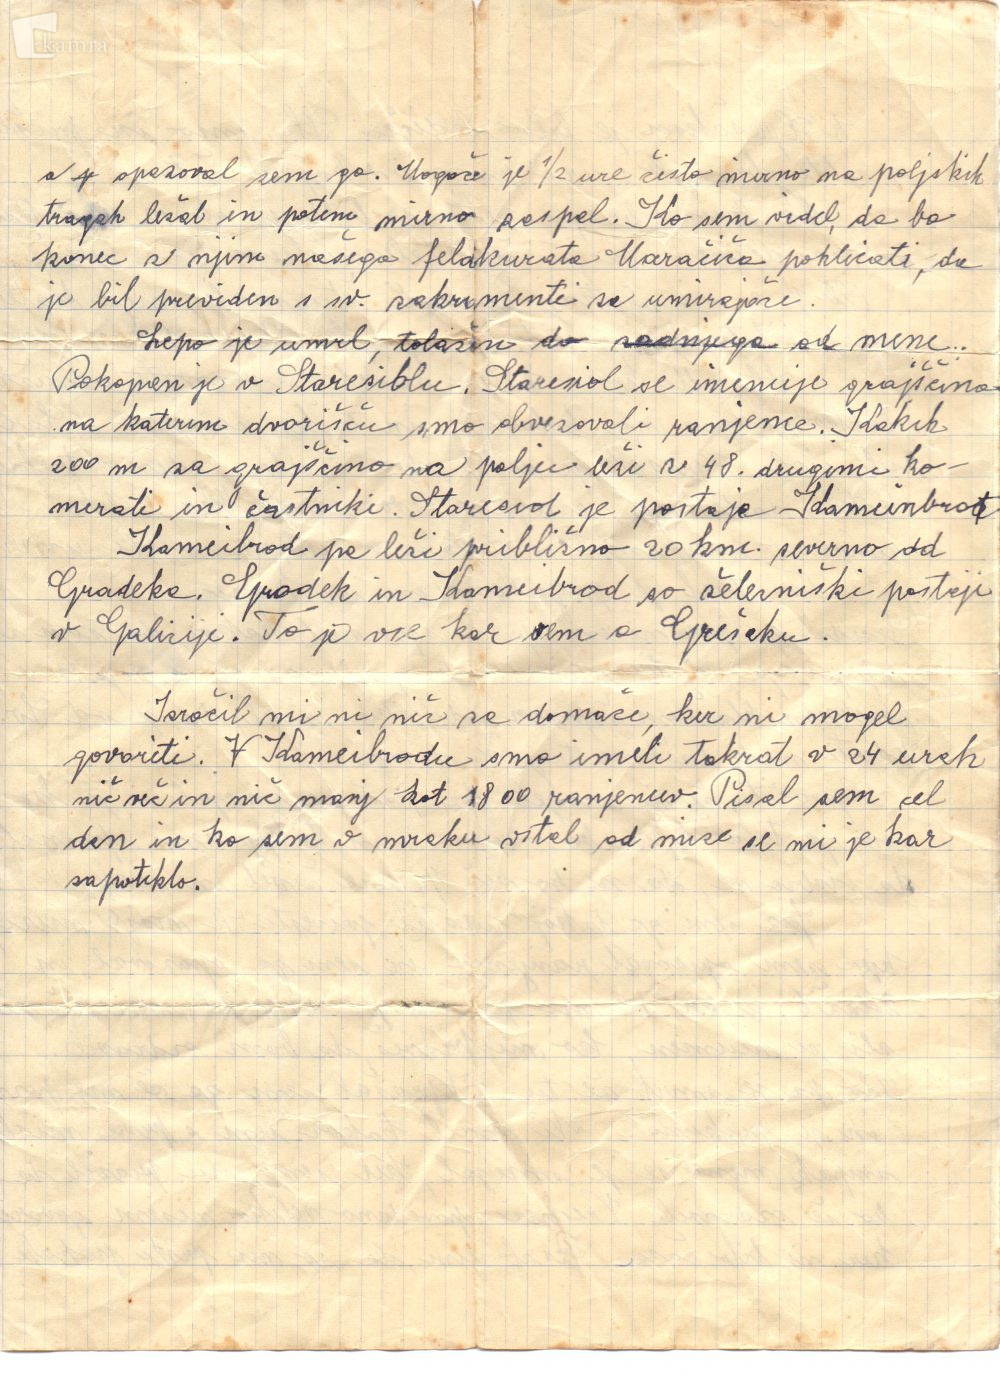 kamra
opazoval sem ga. Mogoče je 1/2 ure čisto mirno na poljskih
tragah ležal in potem mirno zaspal. Ko sem videl, da bo
konec z njim našega felzkurata Maračiča poklicati, da
je bil previden s sv. zakramenti za umirajoče.
Lepo je umrl, tolažen do zadnjega od mene..
Pokopan je v Staresiolu. Staresiol se imenuje grajščina
na katerim dvorišču smo obvezovali ranjence. Kakih
200 m za grajščino na polju leži z 48. drugimi ko-
merati in častniki. Staresiol je postaja Kameinbrod
Kameibrod pa leži približno 20 km. severno od
Gradeka. Grodek in Kameibrod so železniški postaji
v Galiziji. To je vse kar vem o Grešaku.
Izročil mi ni nič za domače, ker ni mogel
govoriti. V Kameibrodu smo imeli takrat v 24 urah
nič več in nič manj kot 1800 ranjencev. Pisal sem cel
dan in ko sem v mraku vstal od mize se mi je kar
zapoteklo.